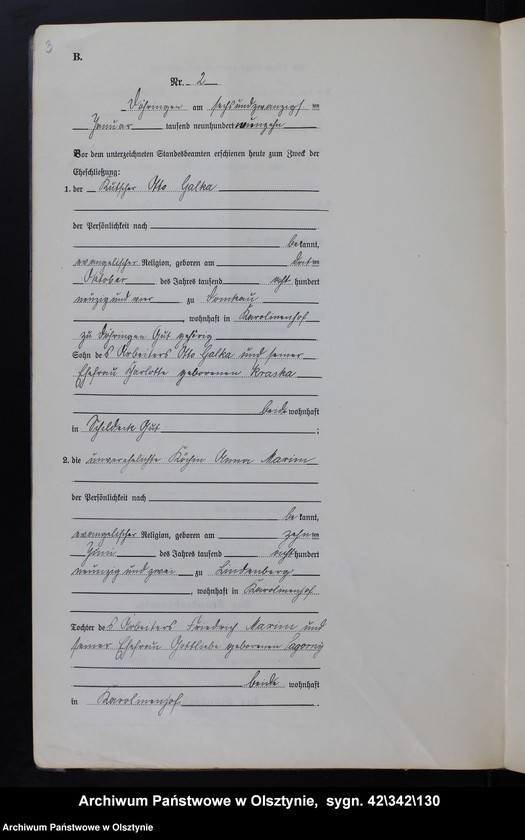 3
B.
Nr. 2
Döhringen am sechsundzwanzigsten
Januar tausend neunhundert neunzehn
Vor dem unterzeichneten Standesbeamten erschienen heute zum Zweck der
Eheschließung:
1. der Kutscher Otto Galka
der Persönlichkeit nach
bekannt,
evangelischer Religion, geboren am dritten
Oktober des Jahres tausend acht hundert
neunzig und vier zu
, wohnhaft in Karolinenhof
zu Döhringen Gut gehörig
Sohn des Arbeiters Otto Galka und seiner
Ehefrau Charlotte geborenen Kraska
beide wohnhaft
in Schildeck Gut ;
2. die unverehelichte Köchin Anna Marim
der Persönlichkeit nach
bekannt,
evangelischer Religion, geboren am zehnten
Juni des Jahres tausend acht hundert
neunzig und zwei zu Lindenberg
, wohnhaft in Karolinenhof
Tochter des Arbeiters Friedrich Marim und
seiner Ehefrau Gottliebe geborenen
beide wohnhaft
in Karolinenhof .
Archiwum Państwowe w Olsztynie, sygn. 42\342\130
Archiwum Państwowe w Olsztynie